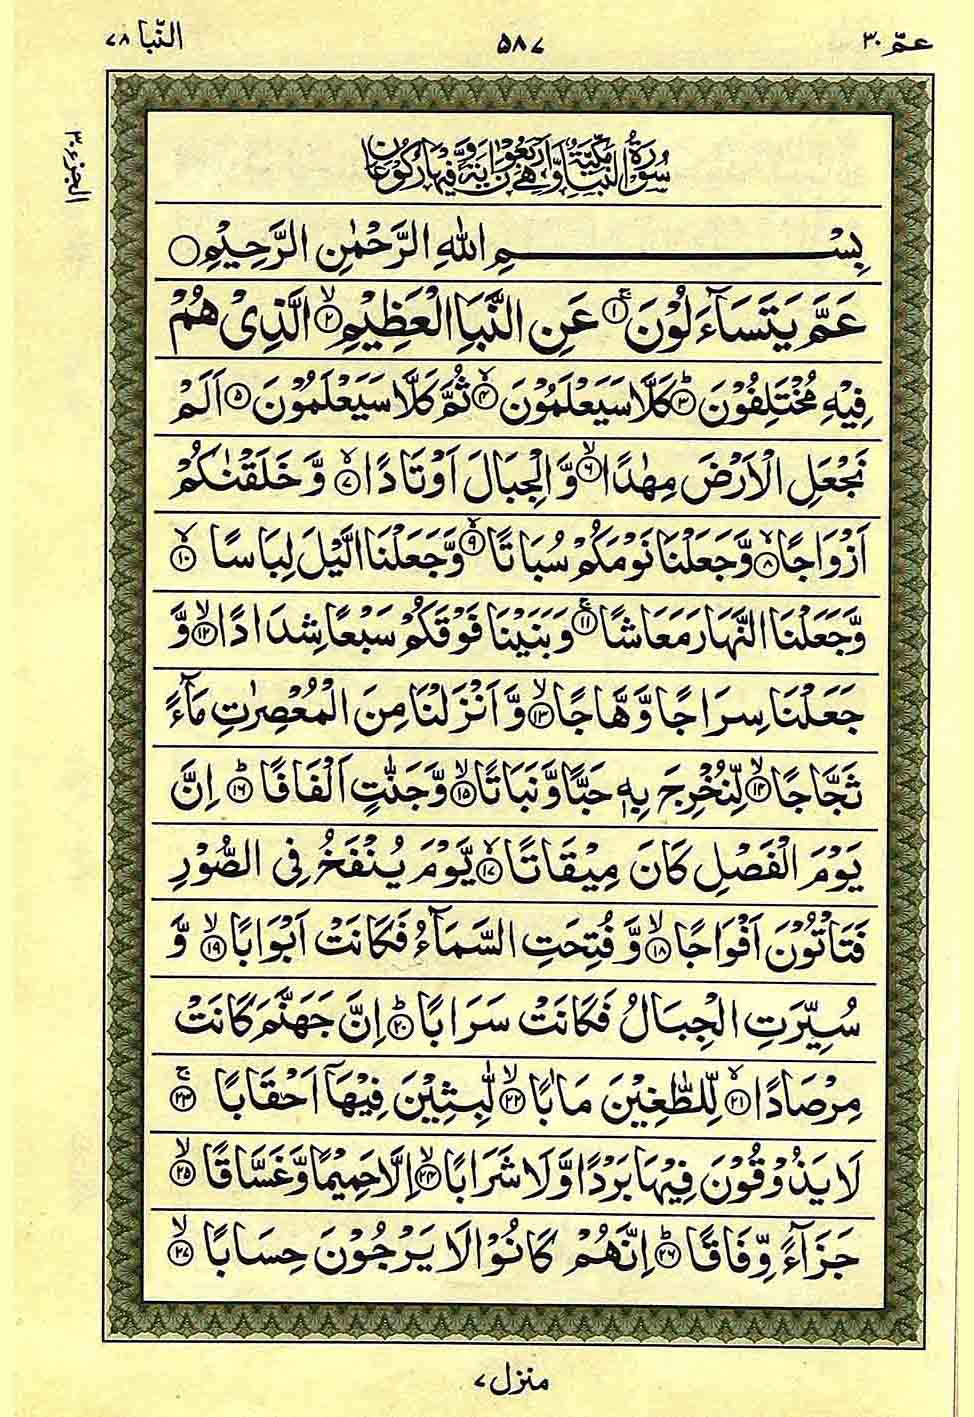 عمّ ٣٠
٥٨٧
النّبا ٧٨
الجزء ٣٠
سُوْرَةُ النَّبَاِ مَكِّيَّةٌ وَّهِىَ اَرْبَعُوْنَ اٰيَةً وَّفِيْهَا رُكُوْعَانِ
بِسْمِ اللهِ الرَّحْمٰنِ الرَّحِيْمِ
عَمَّ يَتَسَآءَلُوْنَ ۚ﴿١﴾ عَنِ النَّبَاِ الْعَظِيْمِ ۙ﴿٢﴾ الَّذِىْ هُمْ
فِيْهِ مُخْتَلِفُوْنَ ؕ﴿٣﴾ كَلَّا سَيَعْلَمُوْنَ ۙ﴿٤﴾ ثُمَّ كَلَّا سَيَعْلَمُوْنَ ﴿٥﴾ اَلَمْ
نَجْعَلِ الْاَرْضَ مِهٰدًا ۙ﴿٦﴾ وَّ الْجِبَالَ اَوْتَادًا ۙ﴿٧﴾ وَّ خَلَقْنٰكُمْ
اَزْوَاجًا ۙ﴿٨﴾ وَّجَعَلْنَا نَوْمَكُمْ سُبَاتًا ۙ﴿٩﴾ وَّجَعَلْنَا الَّيْلَ لِبَاسًا ۙ﴿١٠﴾
وَّجَعَلْنَا النَّهَارَ مَعَاشًا ۚ﴿١١﴾ وَبَنَيْنَا فَوْقَكُمْ سَبْعًا شِدَادًا ۙ﴿١٢﴾ وَّ
جَعَلْنَا سِرَاجًا وَّهَّاجًا ۙ﴿١٣﴾ وَّ اَنْزَلْنَا مِنَ الْمُعْصِرٰتِ مَآءً
ثَجَّاجًا ۙ﴿١٤﴾ لِّنُخْرِجَ بِهٖ حَبًّا وَّنَبَاتًا ۙ﴿١٥﴾ وَّجَنّٰتٍ اَلْفَافًا ؕ﴿١٦﴾ اِنَّ
يَوْمَ الْفَصْلِ كَانَ مِيْقَاتًا ۙ﴿١٧﴾ يَّوْمَ يُنْفَخُ فِى الصُّوْرِ
فَتَاْتُوْنَ اَفْوَاجًا ۙ﴿١٨﴾ وَّ فُتِحَتِ السَّمَآءُ فَكَانَتْ اَبْوَابًا ۙ﴿١٩﴾ وَّ
سُيِّرَتِ الْجِبَالُ فَكَانَتْ سَرَابًا ؕ﴿٢٠﴾ اِنَّ جَهَنَّمَ كَانَتْ
مِرْصَادًا ۙ﴿٢١﴾ لِّلطّٰغِيْنَ مَاٰبًا ۙ﴿٢٢﴾ لّٰبِثِيْنَ فِيْهَاۤ اَحْقَابًا ۚ﴿٢٣﴾
لَا يَذُوْقُوْنَ فِيْهَا بَرْدًا وَّلَا شَرَابًا ۙ﴿٢٤﴾ اِلَّا حَمِيْمًا وَّغَسَّاقًا ۙ﴿٢٥﴾
جَزَآءً وِّفَاقًا ؕ﴿٢٦﴾ اِنَّهُمْ كَانُوْا لَا يَرْجُوْنَ حِسَابًا ۙ﴿٢٧﴾
منزل ٧